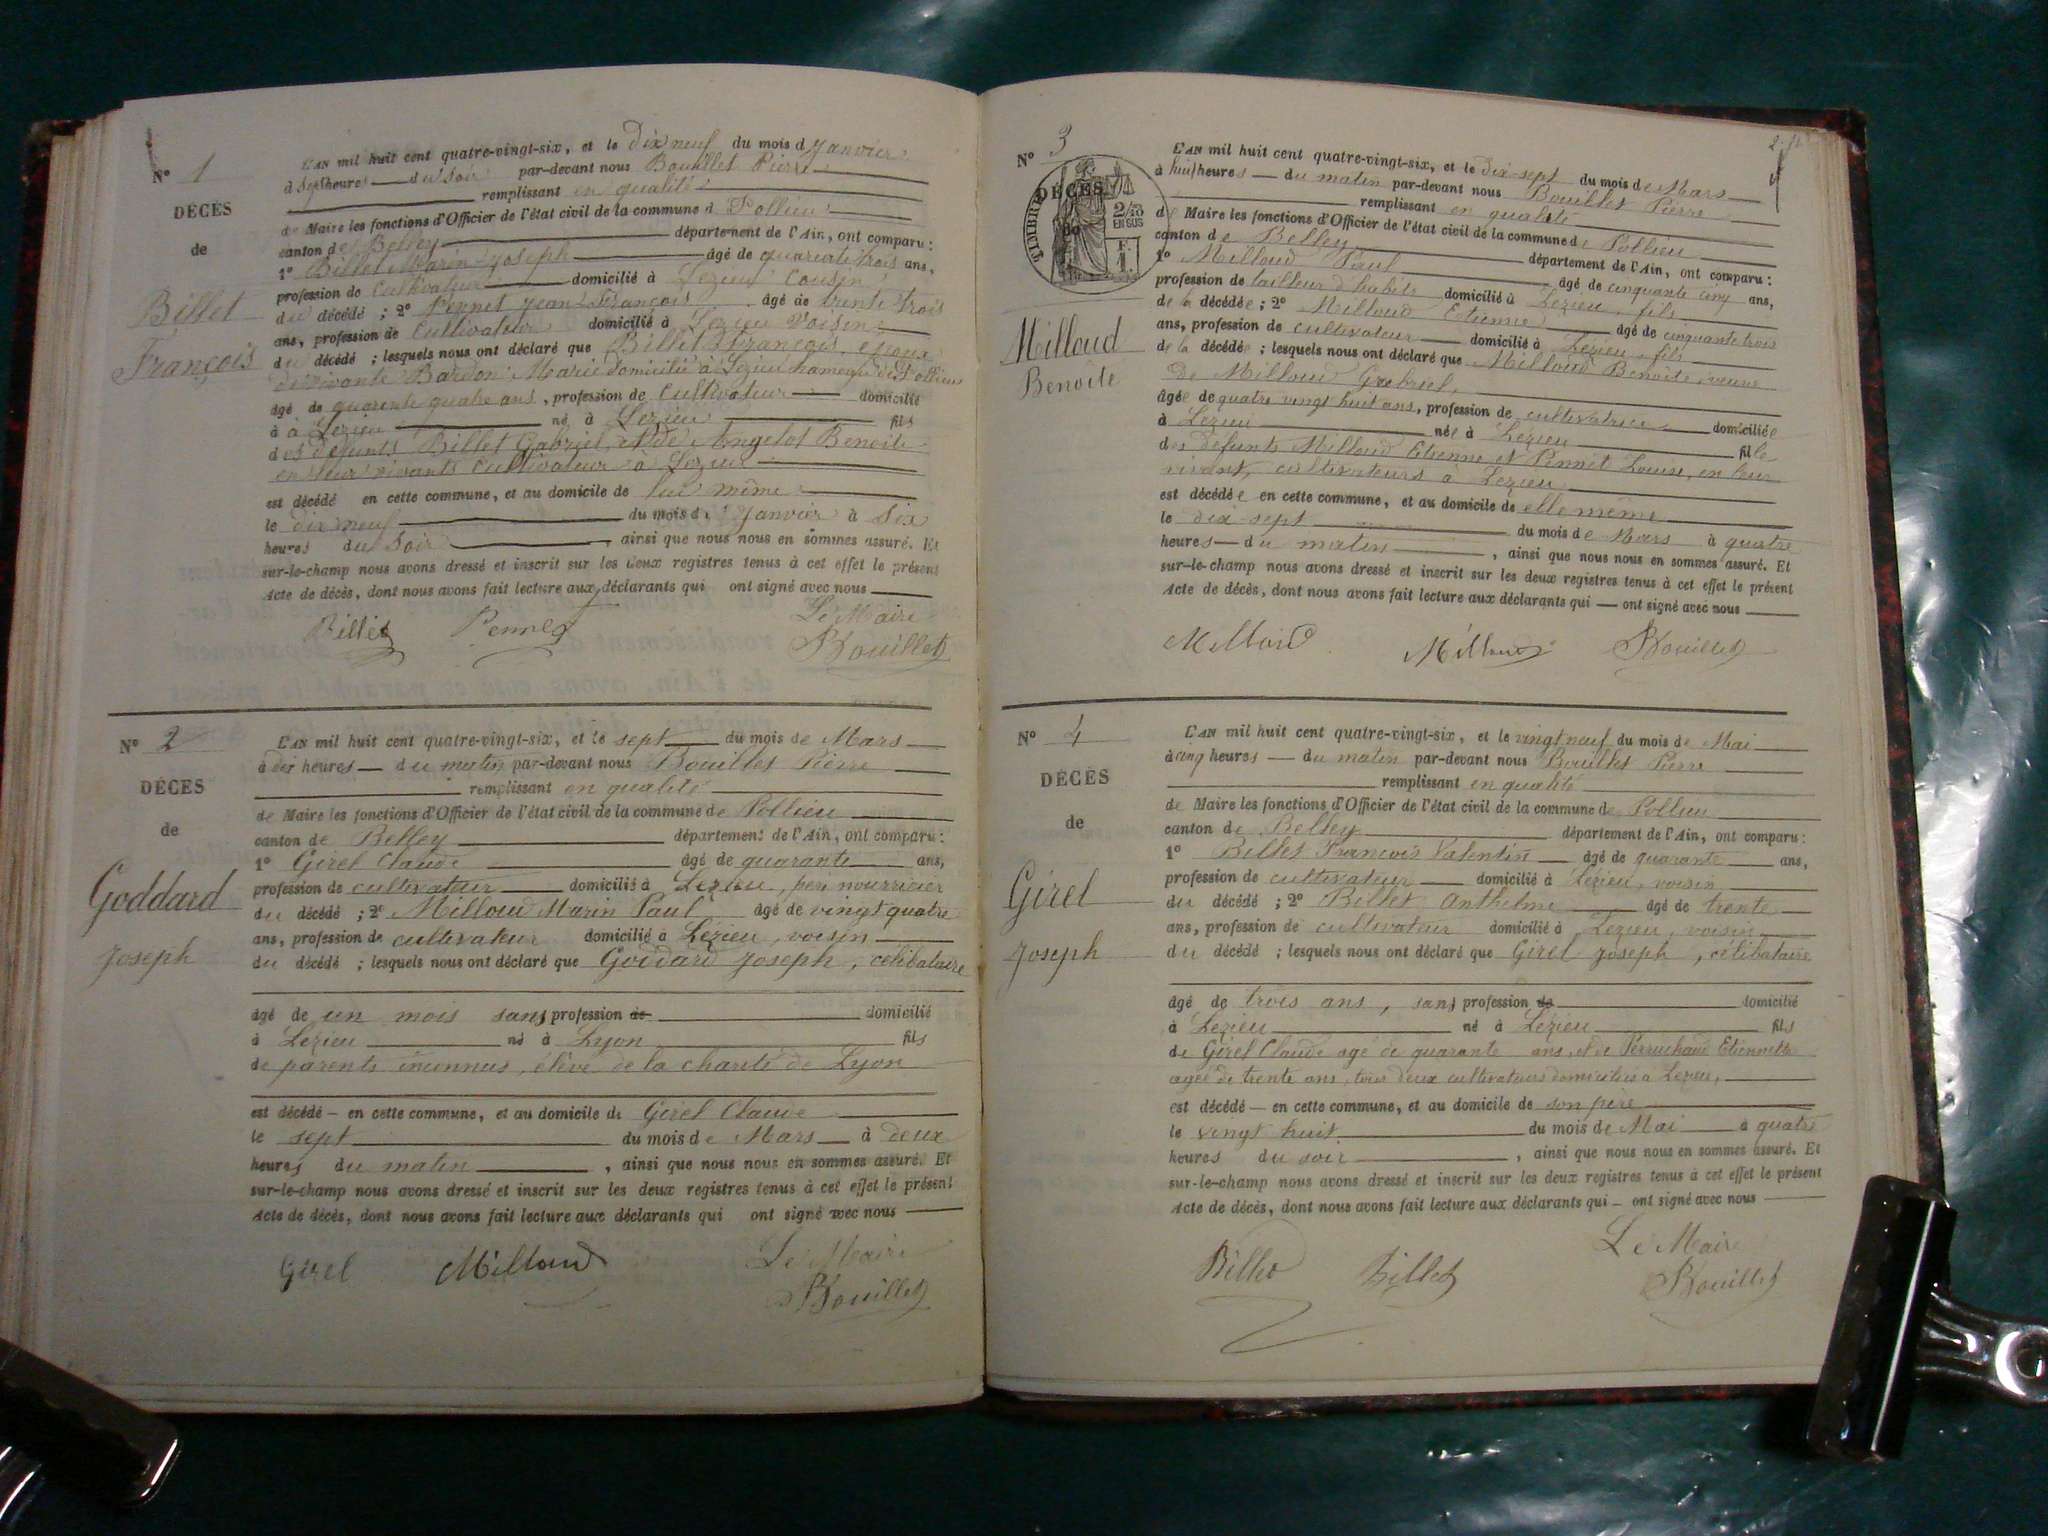 N° 1
DÉCÈS
de
Billet
François
L'AN mil huit cent quatre-vingt-six, et le Dix neuf du mois d Janvier
à sept heures du soir par-devant nous Bouillet Pierre
remplissant en qualité
de Maire les fonctions d'Officier de l'état civil de la commune d Pollieu
canton de Belley département de l'Ain, ont comparu :
1° Billet Marin Joseph âgé de quarante trois ans,
profession de cultivateur domicilié à Lezieu Cousin
du décédé ; 2° Pennet Jean François âgé de trente trois
ans, profession de Cultivateur domicilié à Lezieu Voisin
du décédé ; lesquels nous ont déclaré que Billet François, époux
de vivante Bardon Marie domicilié à Lezieu hameau de Pollieu
âgé de quarente quatre ans, profession de Cultivateur domicilié
à à Lezieu né à Lezieu fils
des défunts Billet Gabriel et de Angelot Benoite
en leur vivants Cultivateur à Lezieu
est décédé en cette commune, et au domicile de lui même
le dix neuf du mois de Janvier à Six
heures du Soir, ainsi que nous nous en sommes assuré. Et
sur-le-champ nous avons dressé et inscrit sur les deux registres tenus à cet effet le présent
Acte de décès, dont nous avons fait lecture aux déclarants qui ont signé avec nous
Le Maire
Billet Pennet Bouillet
N° 2
DÉCÈS
de
Goddard
Joseph
L'AN mil huit cent quatre-vingt-six, et le sept du mois de Mars
à dix heures du matin par-devant nous Bouillet Pierre
remplissant en qualité
de Maire les fonctions d'Officier de l'état civil de la commune de Pollieu
canton de Belley département de l'Ain, ont comparu :
1° Girel Claude âgé de quarante ans,
profession de cultivateur domicilié à Lezieu, peri nourricier
du décédé ; 2° Milloud Marin Paul âgé de vingt quatre
ans, profession de cultivateur domicilié à Lezieu, voisin
du décédé ; lesquels nous ont déclaré que Goddard Joseph, célibataire
âgé de un mois sans profession de domicilié
à Lezieu né à Lyon fils
de parents inconnus, élève de la charité de Lyon
est décédé en cette commune, et au domicile de Girel Claude
le sept du mois de Mars à deux
heures du matin, ainsi que nous nous en sommes assuré. Et
sur-le-champ nous avons dressé et inscrit sur les deux registres tenus à cet effet le présent
Acte de décès, dont nous avons fait lecture aux déclarants qui ont signé avec nous
Le Maire
Girel Milloud Bouillet
N° 3
TIMBRE
DÉCÈS
de
2/10
EN SUS
F.
1.
Milloud
Benoite
L'AN mil huit cent quatre-vingt-six, et le Dix-sept du mois de Mars
à huit heures du matin par-devant nous Bouillet Pierre
remplissant en qualité
de Maire les fonctions d'Officier de l'état civil de la commune de Pollieu
canton de Belley département de l'Ain, ont comparu :
1° Milloud Paul âgé de cinquante cinq ans,
profession de tailleur d'habits domicilié à Lezieu, fils
de la décédée ; 2° Milloud Etienne âgé de cinquante trois
ans, profession de cultivateur domicilié à Lezieu, fils
de la décédée ; lesquels nous ont déclaré que Milloud Benoite, veuve
De Milloud Gabriel,
âgée de quatre vingt huit ans, profession de cultivatrice domiciliée
à Lezieu née à Lezieu fille
des defunts Milloud Etienne et Pennet Louise, en leur
vivant, cultivateurs à Lezieu
est décédée en cette commune, et au domicile de elle même
le dix-sept du mois de Mars à quatre
heures du matin, ainsi que nous nous en sommes assuré. Et
sur-le-champ nous avons dressé et inscrit sur les deux registres tenus à cet effet le présent
Acte de décès, dont nous avons fait lecture aux déclarants qui ont signé avec nous
Milloud Milloud Bouillet
N° 4
DÉCÈS
de
Girel
Joseph
L'AN mil huit cent quatre-vingt-six, et le vingt neuf du mois de Mai
à cinq heures du matin par-devant nous Bouillet Pierre
remplissant en qualité
de Maire les fonctions d'Officier de l'état civil de la commune de Pollieu
canton de Belley département de l'Ain, ont comparu :
1° Billet François Valentin âgé de quarante ans,
profession de cultivateur domicilié à Lezieu, voisin
du décédé ; 2° Billet Anthelme âgé de trente
ans, profession de cultivateur domicilié à Lezieu, voisin
du décédé ; lesquels nous ont déclaré que Girel Joseph, célibataire
âgé de trois ans, sans profession de domicilié
à Lezieu né à Lezieu fils
de Girel Claude agé de quarante ans, et de Perruchaud Etiennette
agée de trente ans, tous deux cultivateurs domiciliés a Lezieu,
est décédé en cette commune, et au domicile de son pere
le vingt huit du mois de Mai à quatre
heures du soir, ainsi que nous nous en sommes assuré. Et
sur-le-champ nous avons dressé et inscrit sur les deux registres tenus à cet effet le présent
Acte de décès, dont nous avons fait lecture aux déclarants qui ont signé avec nous
Le Maire
Billet Billet Bouillet